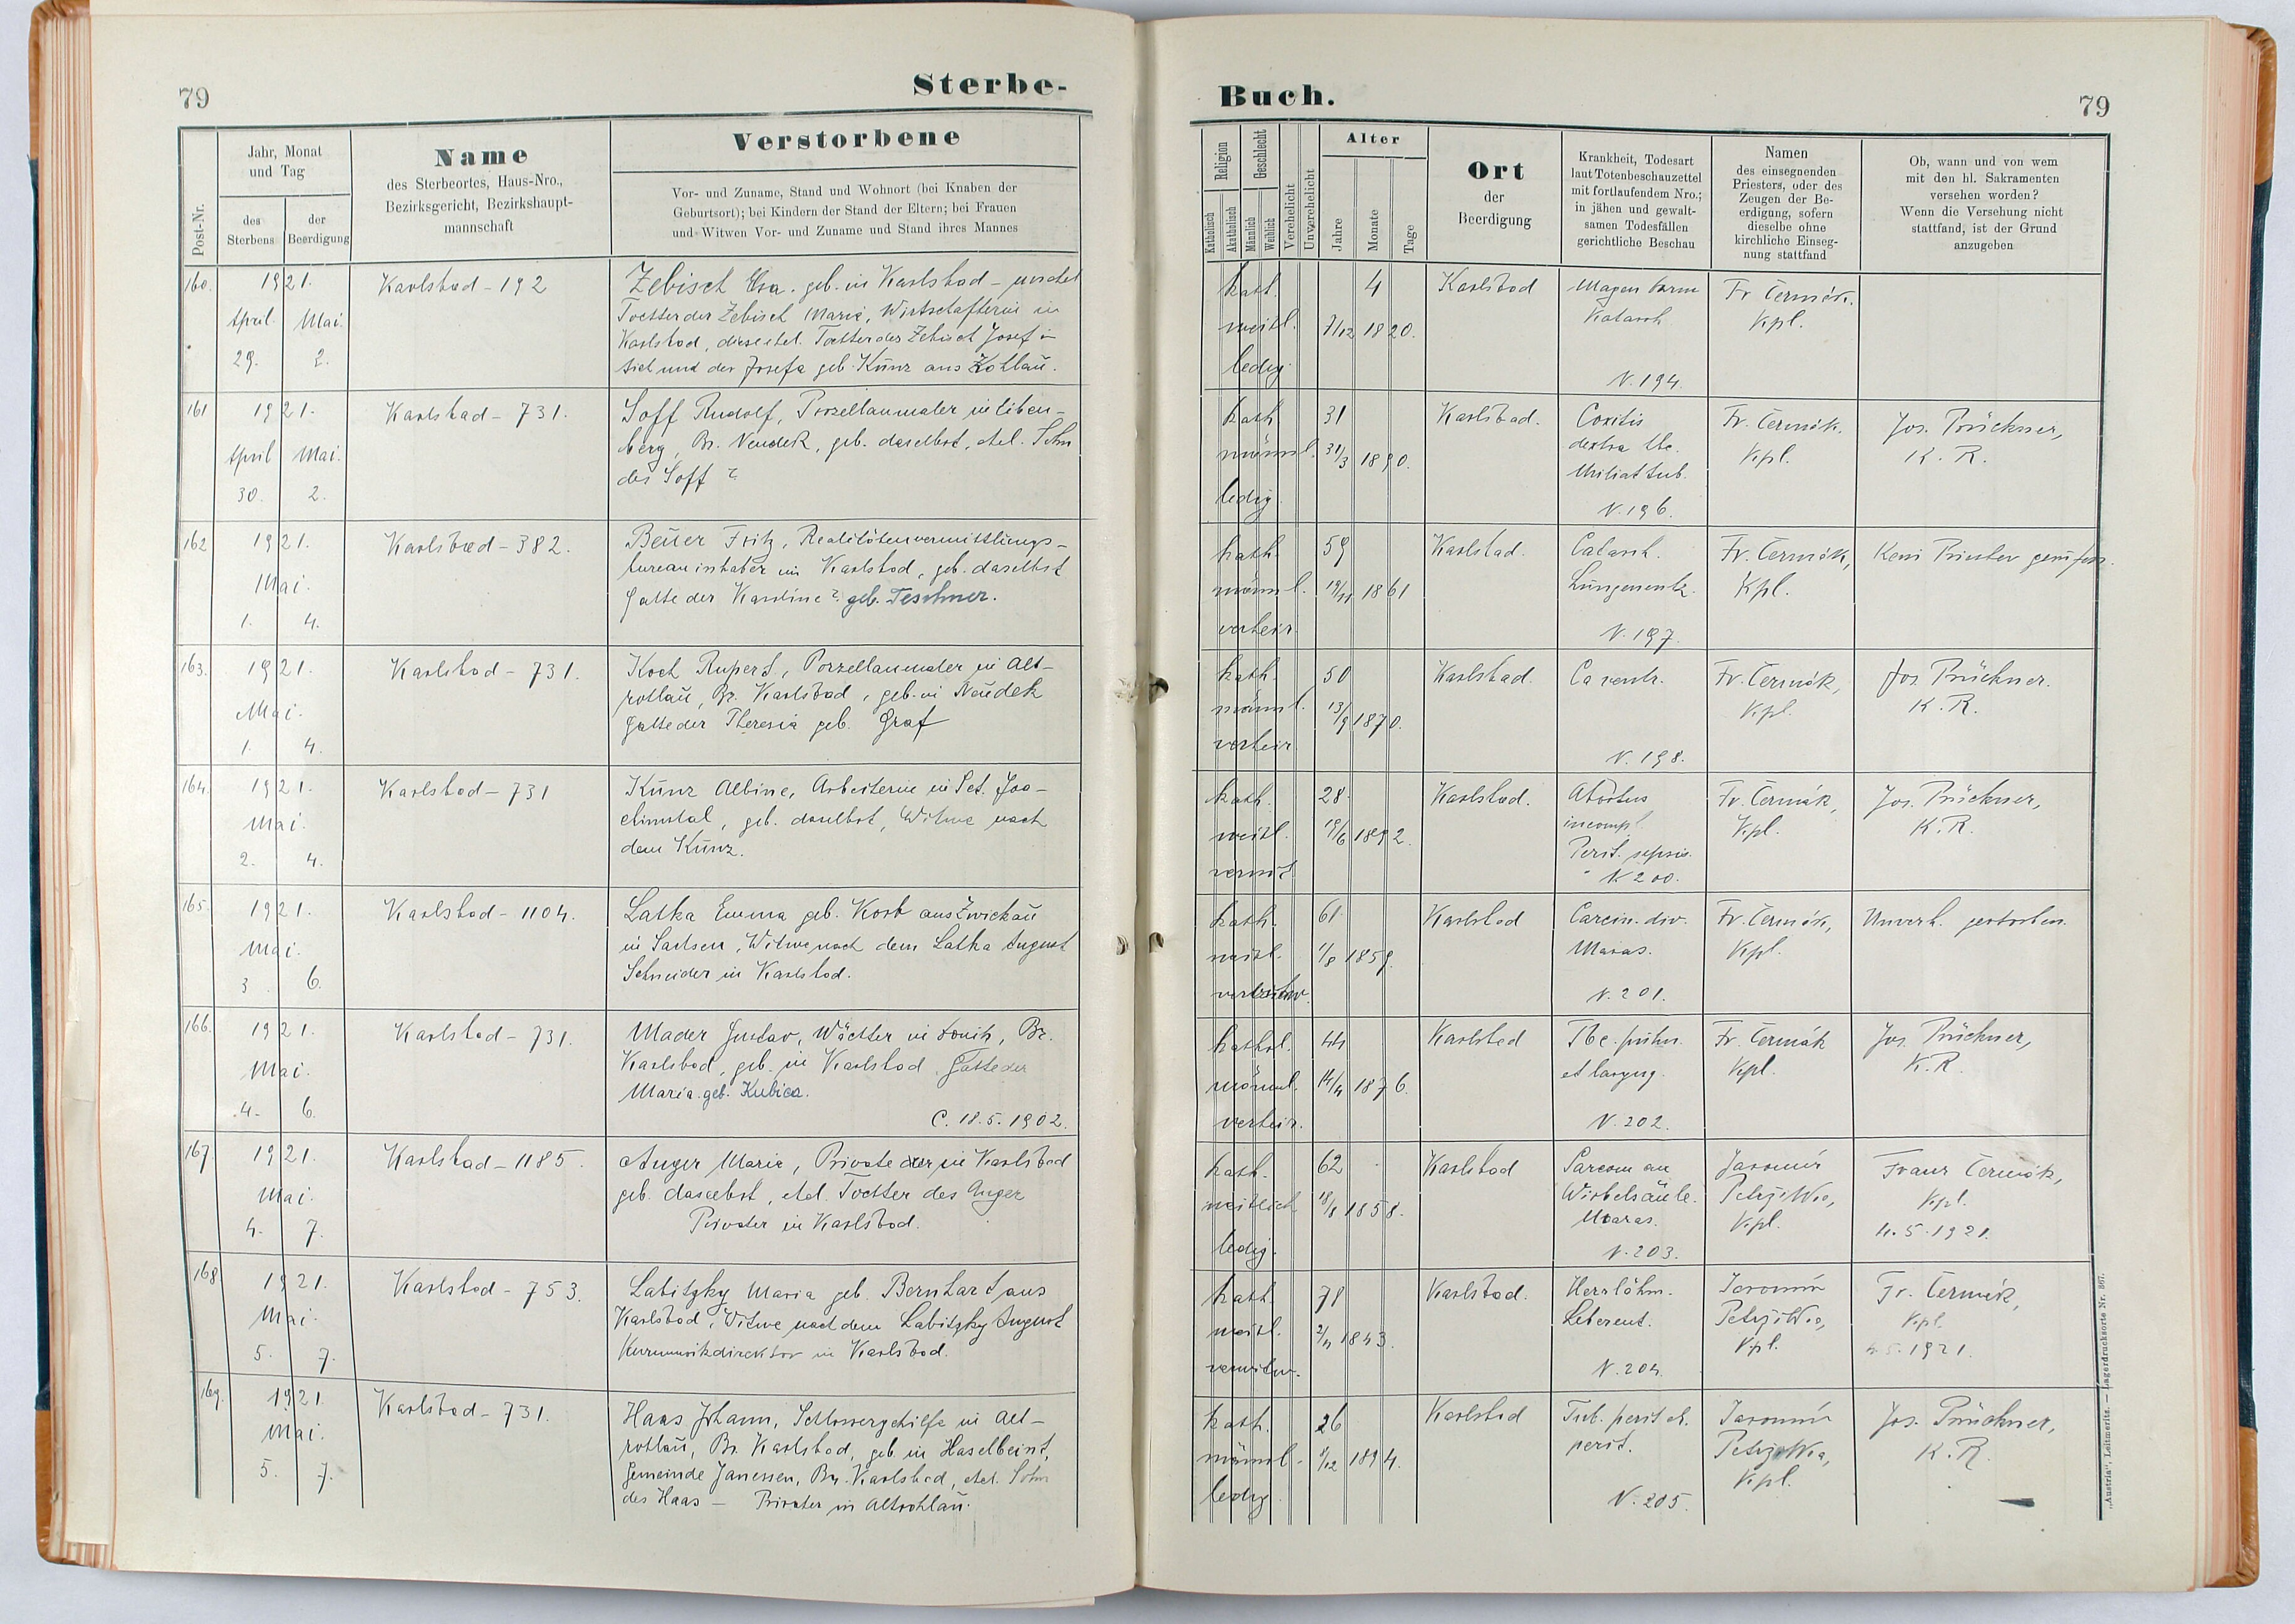 79
Sterbe-
Post-Nr.
Jahr, Monat
und Tag
des
Sterbens
der
Beerdigung
Name
des Sterbeortes, Haus-Nro.,
Bezirksgericht, Bezirkshaupt-
mannschaft
Verstorbene
Vor- und Zuname, Stand und Wohnort (bei Knaben der
Geburtsort); bei Kindern der Stand der Eltern; bei Frauen
und Witwen Vor- und Zuname und Stand ihres Mannes
160.
1921.
April Mai.
29. 2.
Karlsbad - 192
Zebisch geb. in Karlsbad - unehel
Tochter der Zebisch Marie, Wirtschafterin in
Karlsbad, diese ehel. Tochter des Zebisch Josef in
und der Josefa geb. Kunz aus Kohlau.
161
1921.
April Mai.
30. 2.
Karlsbad - 731.
Soff Rudolf, Porzellanmaler in Eiben-
berg, Bz. Neudek, geb. daselbst, ehel. Sohn
des Soff ?
162
1921.
Mai.
1. 4.
Karlsbad - 382.
Beuer Fritz, Realitätenvermittlungs-
bureauinhaber in Karlsbad, geb. daselbst
Gatte der Karoline ? geb. Teschner.
163.
1921.
Mai.
1. 4.
Karlsbad - 731.
Koch Rupert, Porzellanmaler in Alt-
rohlau, Bz. Karlsbad, geb. in Neudek
Gatte der Theresia geb. Graf
164.
1921.
Mai.
2. 4.
Karlsbad - 731
Kunz Albine, Arbeiterin in Sct. Joa-
chimstal, geb. daselbst, Witwe nach
dem Kunz.
165.
1921.
Mai.
3. 6.
Karlsbad - 1104.
Latka Emma geb. Korb aus Zwickau
in Sachsen, Witwe nach dem Latka August
Schneider in Karlsbad.
166.
1921.
Mai.
4. 6.
Karlsbad - 731.
Mader Gustav, Wächter in Donitz, Bz.
Karlsbad, geb. in Karlsbad Gatte der
Maria geb. Kubica.
C. 18.5.1902.
167.
1921.
Mai.
4. 7.
Karlsbad - 1185.
Anger Marie, Private in Karlsbad
geb. daselbst, ehel. Tochter des Anger
Privater in Karlsbad.
168
1921.
Mai.
5. 7.
Karlsbad - 753.
Labitzky Maria geb. Bernhart aus
Karlsbad, Witwe nach dem Labitzky August
Kurmusikdirektor in Karlsbad.
169.
1921.
Mai.
5. 7.
Karlsbad - 731.
Haas Johann, Schlossergehilfe in Alt-
rohlau, Bz. Karlsbad, geb. in
Gemeinde Janessen, Bz. Karlsbad, ehel. Sohn
des Haas - Privater in Altrohlau.
Buch.
79
Religion
Katholisch
Akatholisch
Geschlecht
Männlich
Weiblich
Verehelicht
Unverehelicht
Alter
Jahre
Monate
Tage
Ort
der
Beerdigung
Krankheit, Todesart
laut Totenbeschauzettel
mit fortlaufendem Nro.;
in jähen und gewalt-
samen Todesfällen
gerichtliche Beschau
Namen
des einsegnenden
Priesters, oder des
Zeugen der Be-
erdigung, sofern
dieselbe ohne
kirchliche Einseg-
nung stattfand
Ob, wann und von wem
mit den hl. Sakramenten
versehen worden?
Wenn die Versehung nicht
stattfand, ist der Grund
anzugeben
kath.
weibl.
ledig
4
7/12 1820.
Karlsbad
Magen Darm
Katarrh
N. 194.
Fr. Čermák.
Kpl.
kath
männl.
ledig.
31
31/3 1890.
Karlsbad.
Coxitis
dextra tbc.
Miliartub.
N. 196.
Fr. Čermák.
Kpl.
Jos. Prückner,
K. R.
kath.
männl.
verheir.
59
19/11 1861
Karlsbad.
Catarrh.
Lungenentz.
N. 197.
Fr. Čermák,
Kpl.
Kein Priester gerufen.
kath.
männl.
verheir.
50
13/9 1870.
Karlsbad.
Ca ventr.
N. 198.
Fr. Čermák,
Kpl.
Jos Prückner.
K. R.
kath.
weibl.
verwit
28.
19/6 1892.
Karlsbad.
Abortus
incompl.
Perit. sepsis.
N 200.
Fr. Čermák,
Kpl.
Jos. Prückner,
K. R.
kath.
weibl.
61
1/8 1859.
Karlsbad
Carcin. div.
Maras.
N. 201.
Fr. Čermák,
Kpl.
Unverh. gestorben.
kathol.
männl.
verheir.
44
14/4 1876.
Karlsbad
Tbc. pulm.
et laryng.
N. 202.
Fr. Čermák
Kpl.
Jos. Prückner,
K. R.
kath.
weiblich
ledig.
62
18/8 1858.
Karlsbad
Sarcom an
Wirbelsäule.
Maras.
N. 203.
Jaromír
Kpl.
Franz Čermák,
Kpl.
4. 5. 1921.
kath.
weibl.
verwitw.
78
2/4 1843.
Karlsbad.
Herzlähm.
Leberent.
N. 204.
Jaromír
Kpl.
Fr. Čermák,
Kpl.
4. 5. 1921.
kath.
männl.
ledig
26
1894.
Karlsbad
Tub.
perit.
N. 205.
Jaromír
Kpl.
Jos. Prückner,
K. R.
„Austria", Leitmeritz. — Lagerdrucksorte Nr. 867.